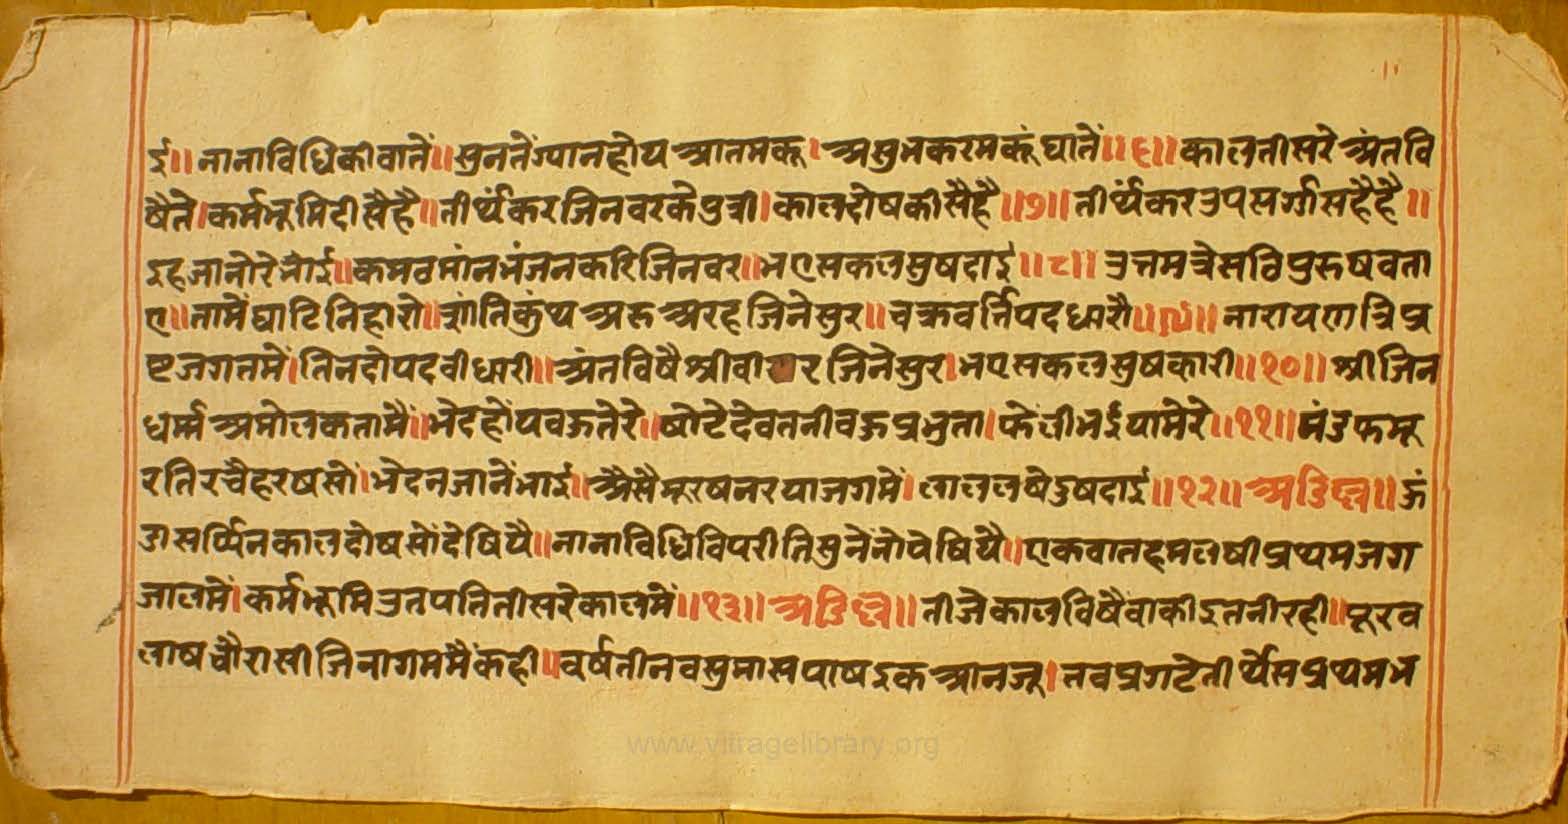 ई॥ नानाविधिकीवातें॥सुनतेंग्यानहोयआतमकू।असुभकरमकूंघातें॥६॥कालतीसरेअंतवि
षैते।कर्मभूमिदीसैहै॥तीर्थंकरजिनवरकेपुत्री।कालदोषकीसैहै॥७॥तीर्थंकरउपसर्ग्गसहैहै॥
इहजानोरेभाई॥कमठमांनभंजनकरिजिनवर॥भएसकलसुषदाई॥८॥उत्तमत्रेसठिपुरुषवता
ए॥तामेंघाटिनिहारो॥शांतिकुंथअरुअरहजिनेसुर॥चक्रवर्त्तिपदधारौ॥९॥नारायणत्रिप्र
ष्टजगतमें।तिनदोपदवीधारी॥अंतविषैश्रीवी र जिनेसुर।भएसकलसुषकारी॥१०॥श्रीजिन
धर्म्मअमोलकतामैं॥भेदहोंयवऊतेरे॥षोटेदेवतनीवऊप्रभुता।फेलीभईघामेरे॥११॥मंडफमू
रतिरचैहरषसों।भेदनजानेंभाई॥अैसैमूरषनरयाजगमें।लाललषेदुषदाई॥१२॥अडिल्ल॥ऊं
डासर्प्पिनकालदोषसोंदेषियै॥नानाविधिविपरीतिसुनेंनोपेषियै॥एकवातहमलषीप्रथमजग
जालमें।कर्मभूमिउतपतितीसरेकालमैं॥१३॥अडिल्ल॥तीजेकालविषैंवाकीइतनीरही॥पूरव
लाषचौरासीजिनागममैंकही॥वर्षतीनवसुमासपाषइकआनजू।तवप्रगटेतीर्थेसप्रथमभ
www.vitragelibrary.org